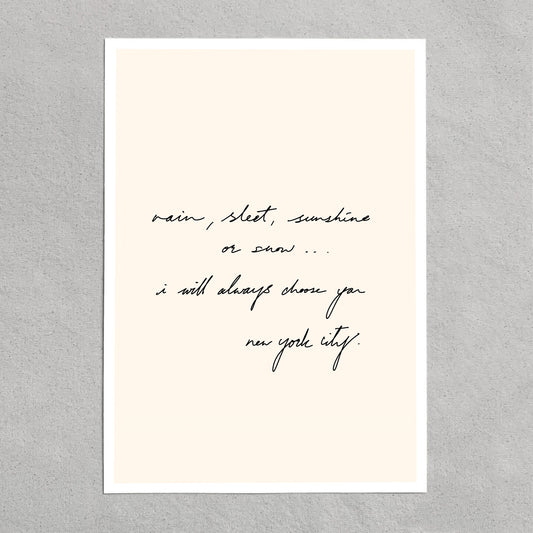 rain, sleet, sunshine
or snow...
i will always choose you
new york city.